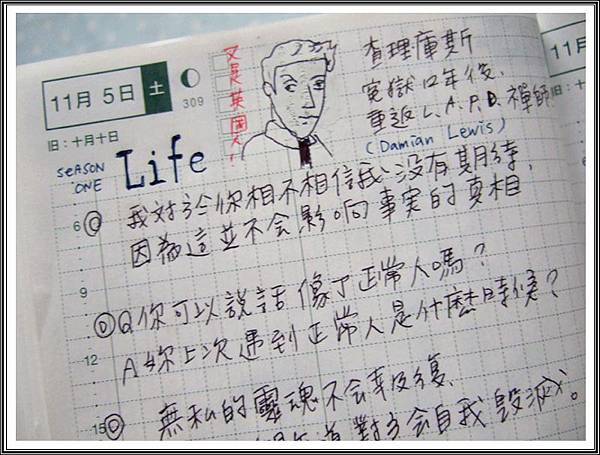 11月 5日 土
309
旧：十月十日
又是英國人!
查理·庫斯
冤獄12年後,
重返L.A.P.D.禪師
(Damian Lewis)
11月
旧：十
SEASON ONE
Life
我对於你相不相信我没有期待,
因為這並不会影响事实的真相.
6
9
12
15
Q你可以說話像个正常人嗎?
A妳上次遇到正常人是什麼時候?
無私的靈魂不会報復.
對方会自我毀滅。